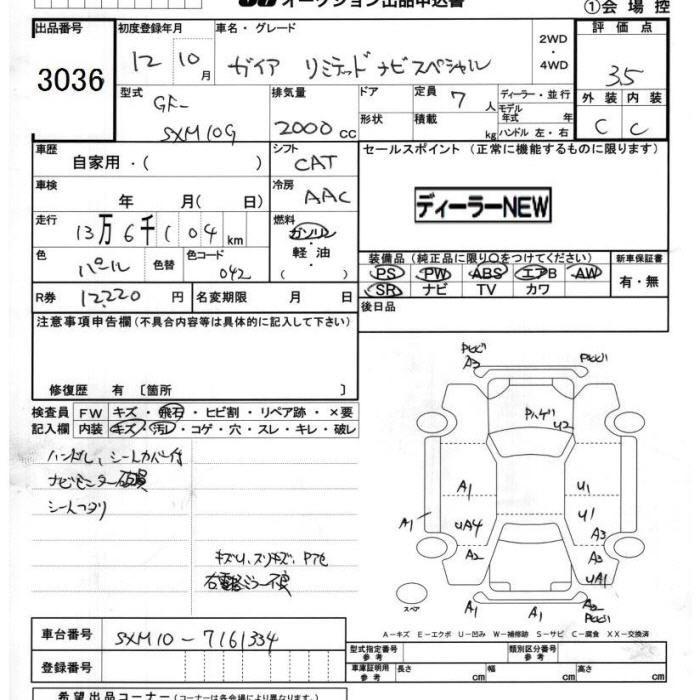 オークション出品申込書 ①会場控
出品番号 初度登録年月 車名・グレード 2WD・4WD 評価点
3036 12 10月 ガイア リミテッド ナビスペシャル 3.5
型式 GF- SXM10G 排気量 2000cc ドア 定員 7人 ディーラー・並行 外装 内装
形状 積載 kg モデル年式 年 C C
ハンドル 左・右
車歴 自家用・( ) シフト CAT セールスポイント (正常に機能するものに限ります)
車検 年 月( 日) 冷房 AAC ディーラーNEW
走行 13万6千104km 燃料 ガソリン・軽油・( )
色 パール 色替 色コード 042 装備品(純正品に限り○をつけてください) 新車保証書
PS PW ABS エアB AW 有・無
R券 12,220円 名変期限 月 日 SR ナビ TV カワ
注意事項申告欄(不具合内容等は具体的に記入して下さい) 後日品
修復歴 有[箇所 ]
検査員 FW キズ・飛石・ヒビ割・リペア跡・×要
記入欄 内装 キズ・汚レ・コゲ・穴・スレ・キレ・破レ
ハンドル、シートカバー付
ナビモニター破損
シートヘタリ
キズU、スリキズ、Pアセ
右電格ミラー不良
A3
Pハゲ U2
A1 U1
A1 UA4 U1
A3
A2 A3
UA1
スペア A1 A1 A2
A-キズ E-エクボ U-凹み W-補修跡 S-サビ C-腐食 XX-交換済
車台番号 SXM10-7161334 型式指定番号 参考 類別区分番号 参考
登録番号 車庫証明用 参考 長さ cm 幅 cm 高さ cm
希望出品コーナー(コーナーは各会場により異なります。)